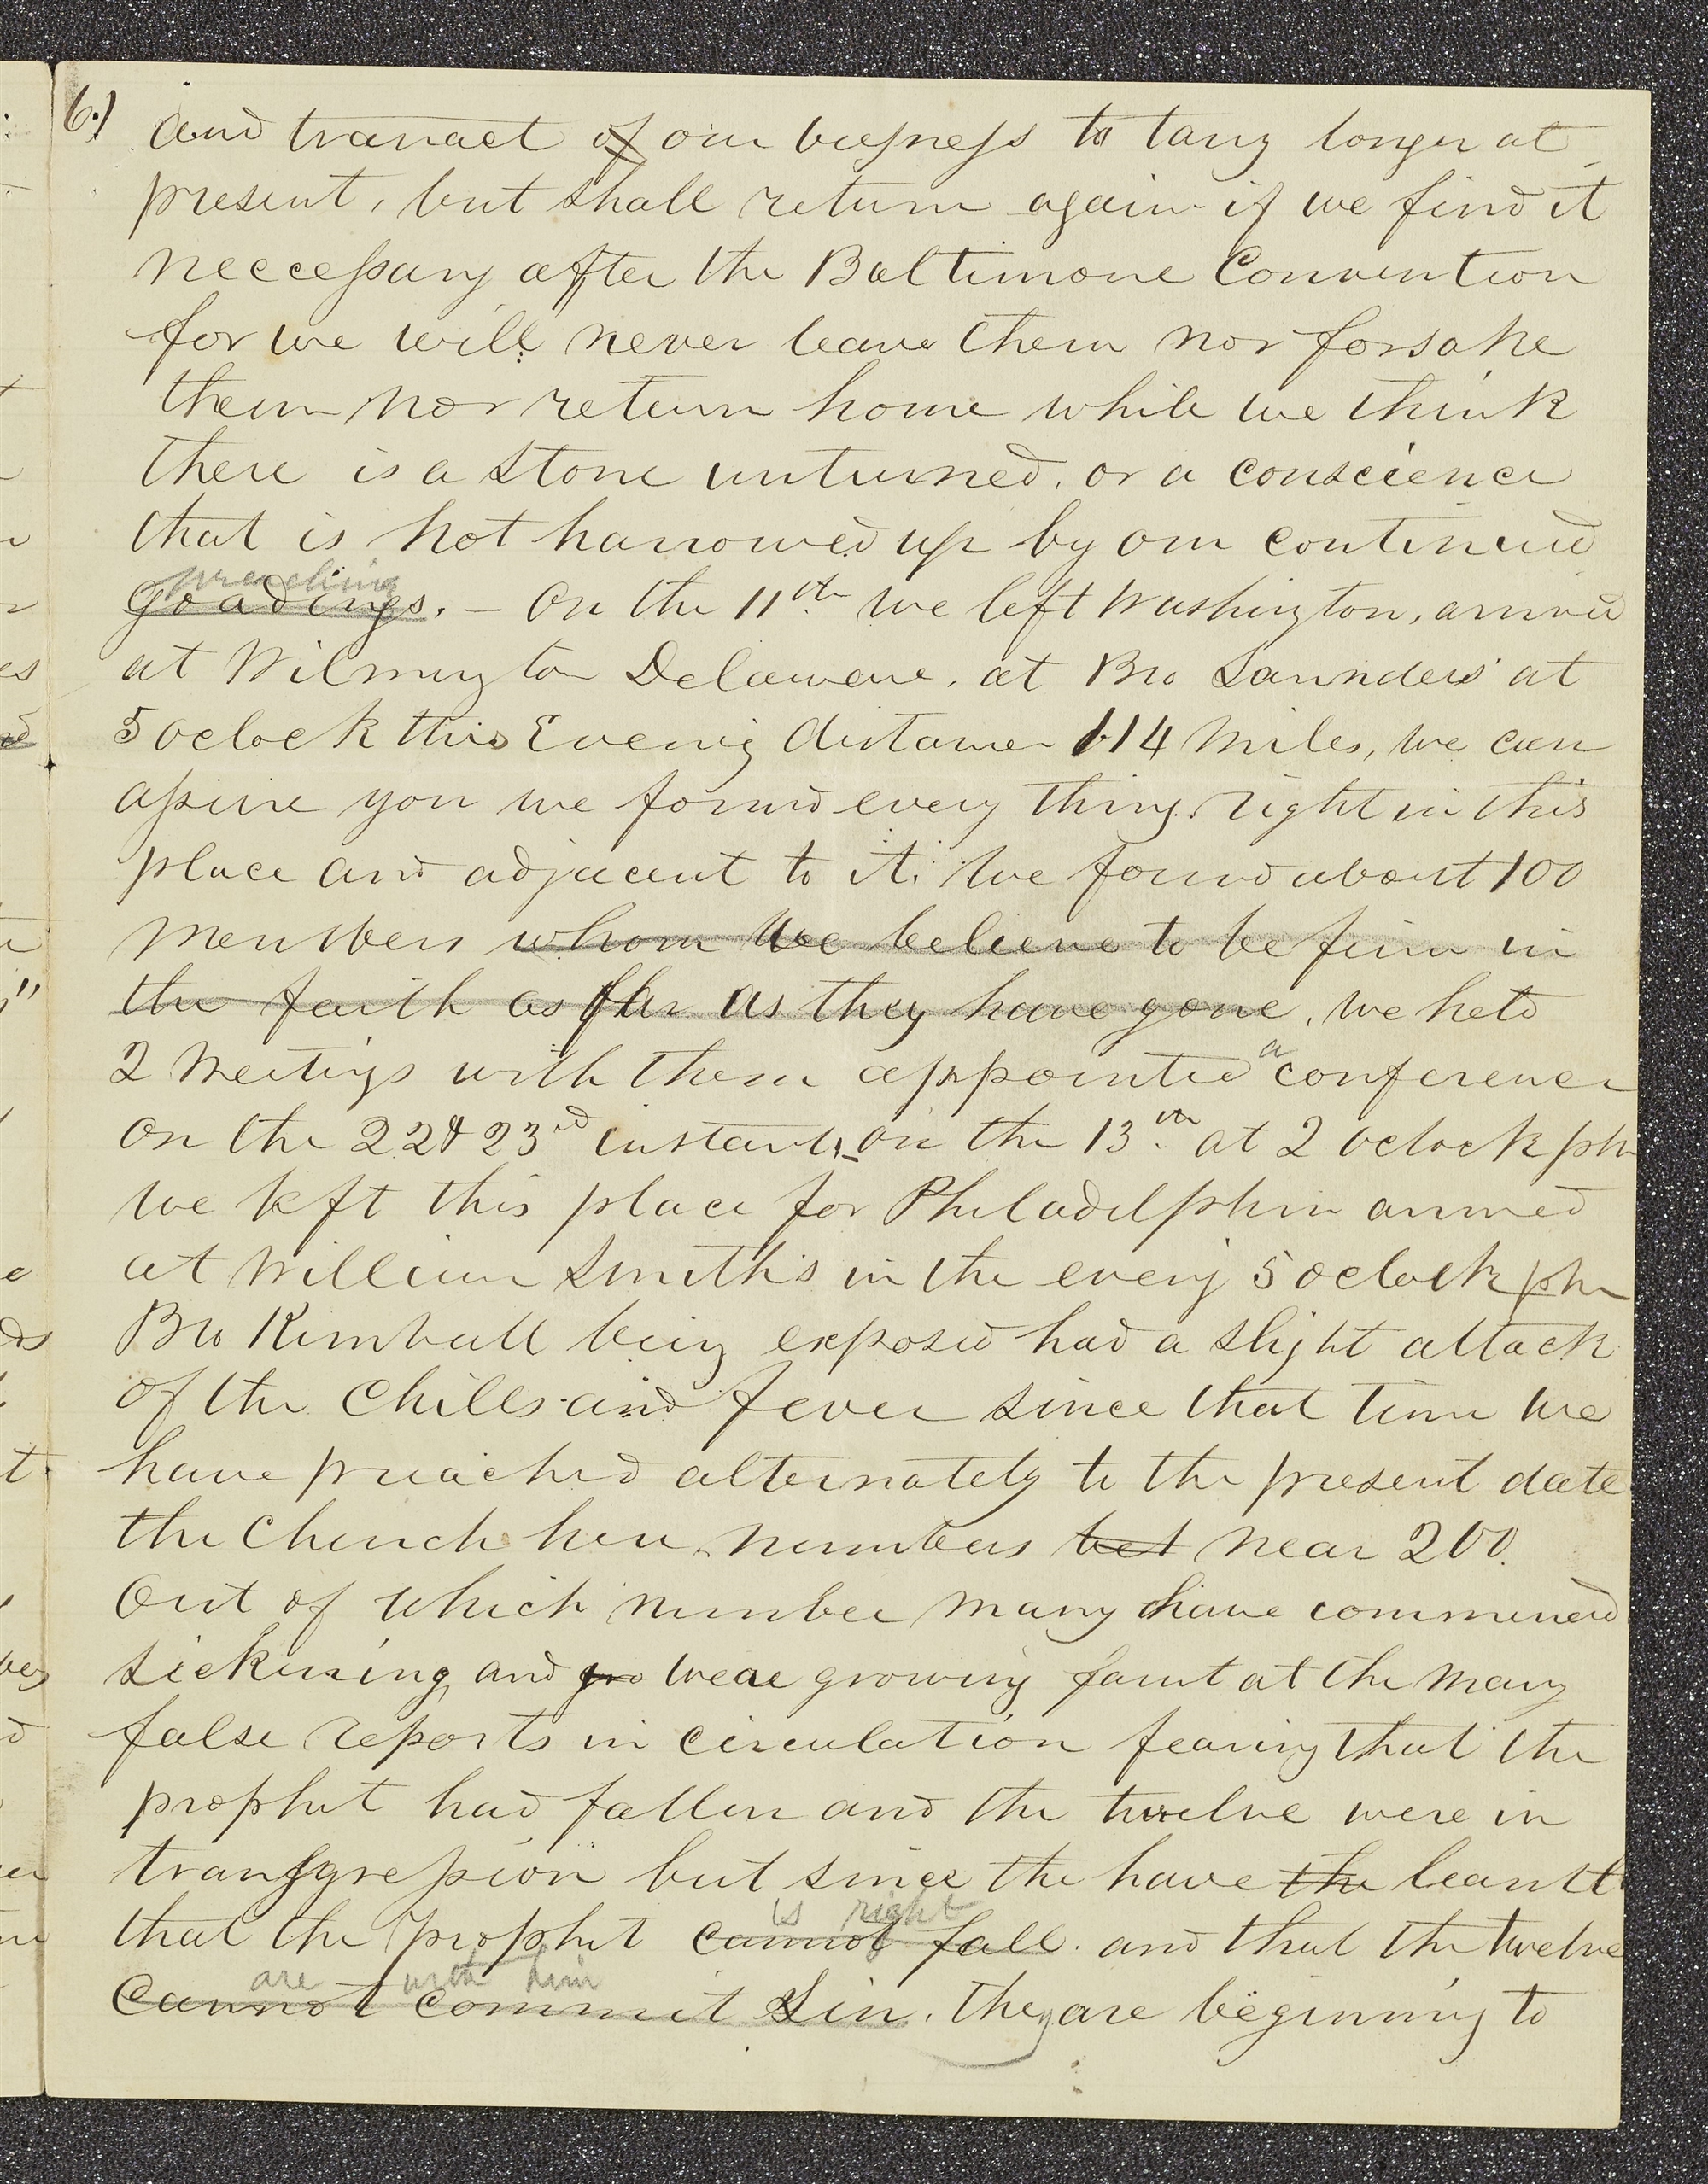 6.) and transact of our busyness to tarry longer at
present, but shall return again if we find it
neccessary after the Baltimore Convention
for we will never leave them nor forsake
them nor return home while we think
there is a stone unturned, or a conscience
that is not harrowed up by our continued
preaching
goadings. – On the 11th we left Washington, arrived
at Wilmington Delaware, at Bro Saunders' at
5 oclock this Evenig distance 114 Miles, we can
assure you we found every thing right in this
place and adjacent to it. We found about 100
Members whom We believe to be firm in
the faith as far as they have gone, we held
2 Meetings with them appointed a conference
on the 22 & 23rd instant, on the 13th at 2 oclock pm
we left this place for Philadelphia arrived
at William Smith's in the evenig 5 oclock pm
Bro Kimball being exposed had a slight attack
of the Chills and fever since that time we
have preached alternately to the present date
the Church here numbers bet near 200.
Out of which number many have commenced
sickening, and gro weae growing faint at the many
false reports in circulation fearing that the
prophet had fallen and the twelve were in
transgression but since the have the leantt
is right
that the prophet cannot fall. and that the twelve
are with him
Cannot commit Sin. they are beginning to